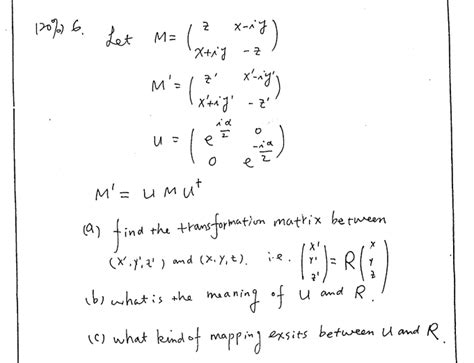 (20%) 6. Let M = ( z x-iy
x+iy -z )
M' = ( z' x'-iy'
x'+iy' -z' )
U = ( e^{iα/2} 0
0 e^{-iα/2} )
M' = U M U†
(a) find the transformation matrix between
(x'.y',z') and (x.y,t). i.e. (x' y' z') = R (x y z)
(b) what is the meaning of U and R.
(c) what kind of mapping exsits between U and R.